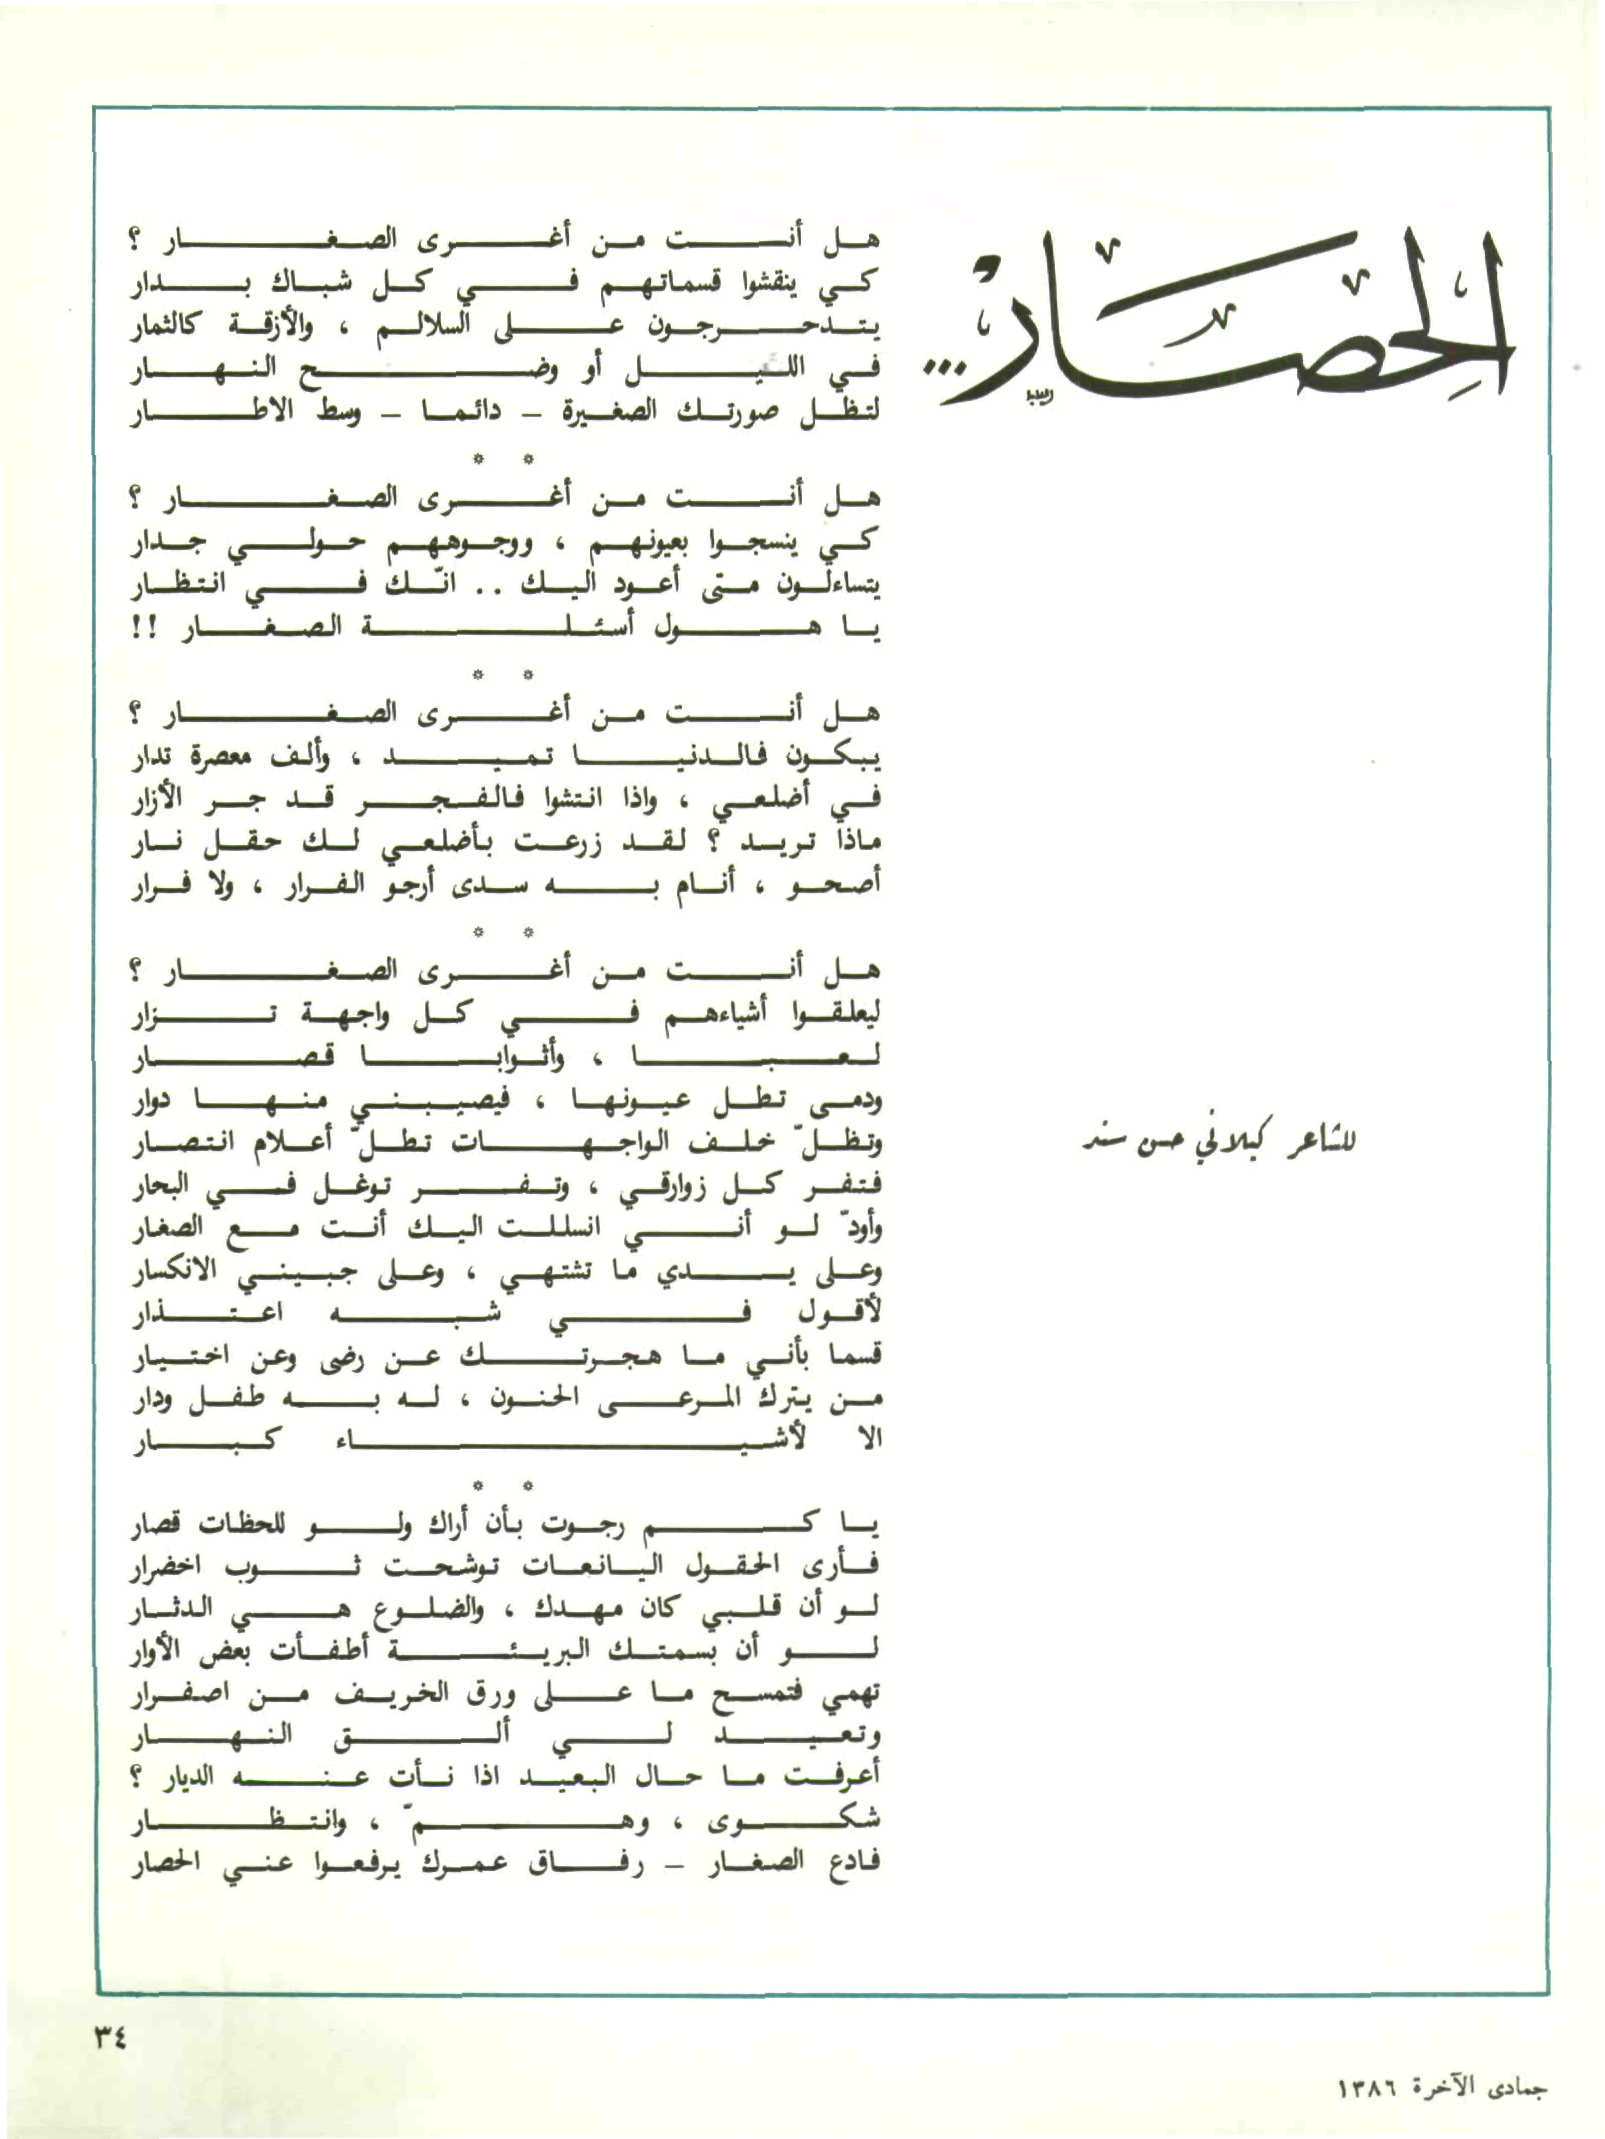 الحصار...
للشاعر كيلاني حسن سند
هل أنت من أغرى الصغار ؟
كي ينقشوا قسماتهم في كل شباك بدار
يتدحرجون على السلالم ، والأزقة كالثمار
في الليل أو وضح النهار
لتظل صورتك الصغيرة – دائما – وسط الاطار
* *
هل أنت من أغرى الصغار ؟
كي ينسجوا بعيونهم ، ووجوههم حولي جدار
يتساءلون متى أعود اليك .. انّك في انتظار
يا هول أسئلة الصغار !!
* *
هل أنت من أغرى الصغار ؟
يبكون فالدنيا تميد ، وألف معصرة تدار
في أضلعي ، واذا انتشوا فالفجر قد جر الأزار
ماذا تريد ؟ لقد زرعت بأضلعي لك حقل نار
أصحو ، أنام به سدى أرجو الفرار ، ولا فرار
* *
هل أنت من أغرى الصغار ؟
ليعلقوا أشياءهم في كل واجهة تزار
لعبا ، وأثوابا قصار
ودمى تطل عيونها ، فيصيبني منها دوار
وتظلّ خلف الواجهات تطلّ أعلام انتصار
فتفر كل زوارقي ، وتفر توغل في البحار
وأودّ لو أني انسللت اليك أنت مع الصغار
وعلى يدي ما تشتهي ، وعلى جبيني الانكسار
لأقول في شبه اعتذار
قسما بأني ما هجرتك عن رضى وعن اختيار
من يترك المرعى الحنون ، له به طفل ودار
الا لأشياء كبار
* *
يا كم رجوت بأن أراك ولو للحظات قصار
فأرى الحقول اليانعات توشحت ثوب اخضرار
لو أن قلبي كان مهدك ، والضلوع هي الدثار
لو أن بسمتك البريئة أطفأت بعض الأوار
تهمي فتمسح ما على ورق الخريف من اصفرار
وتعيد لي ألق النهار
أعرفت ما حال البعيد اذا نأت عنه الديار ؟
شكوى ، وهمّ ، وانتظار
فادع الصغار – رفاق عمرك يرفعوا عني الحصار
٣٤
جمادى الآخرة ١٣٨٦